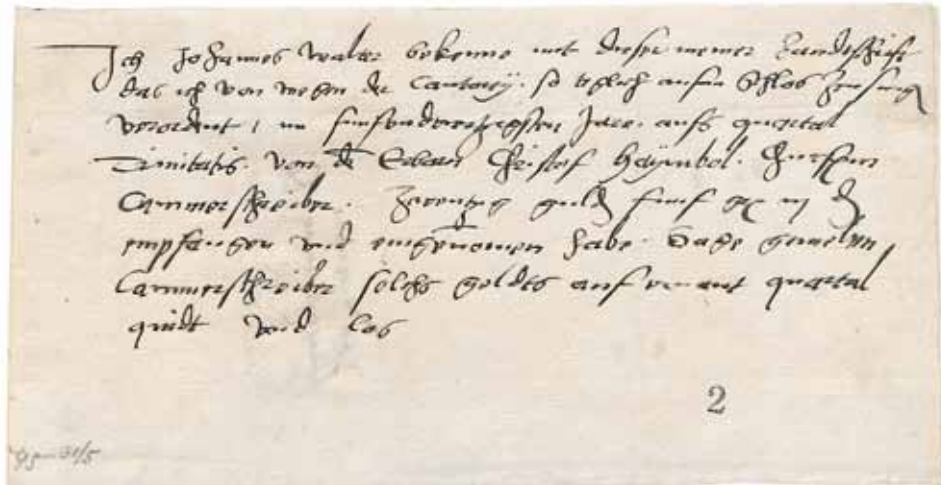 Ich Johannes walter bekenne mit dieser meiner handtschrifft
das ich von wegen der Cantorey so teglich aufm Schlos zusingen
verordent, im funfundviertzigsten Jare aufs quartal
Trinitatis von dem Erbarn Christof Haÿmbol Churf
Cammerschreiber. zwentzig guld funf gr iij d
empfangen und eingenomen habe. Sage gemelten
Cammerschreiber solchs geldts auf genant quartal
quidt und los
2